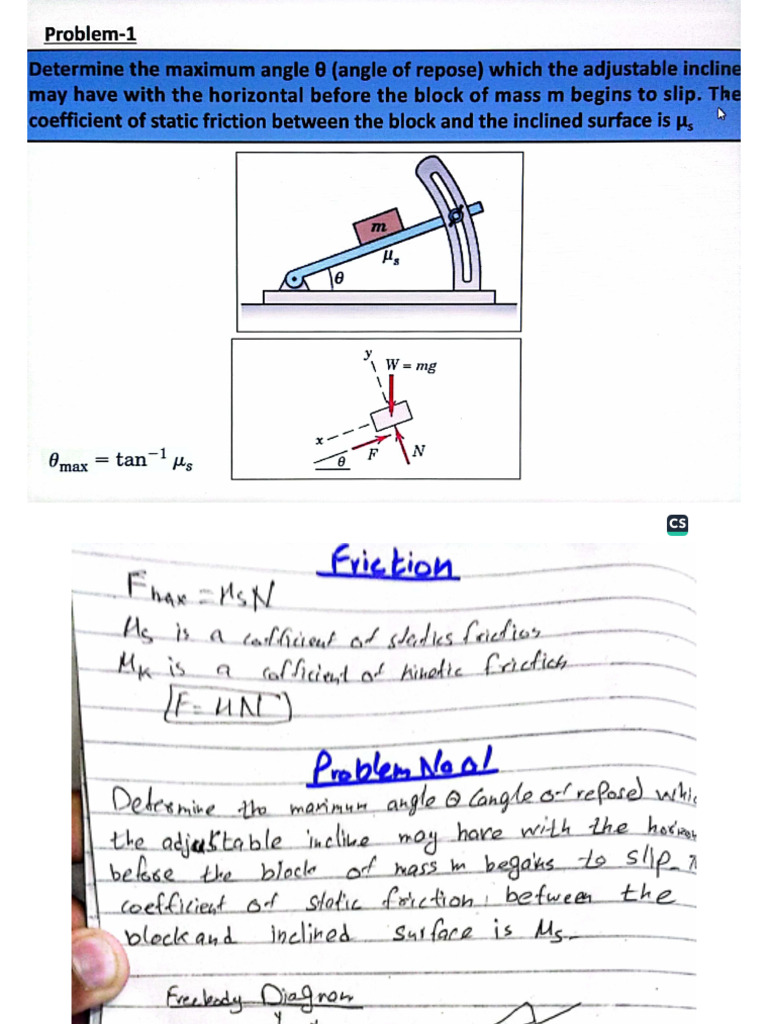 Problem-1
Determine the maximum angle θ (angle of repose) which the adjustable incline
may have with the horizontal before the block of mass m begins to slip. The
coefficient of static friction between the block and the inclined surface is μs
m
μs
θ
y
W = mg
x
F
N
θ
θmax = tan⁻¹ μs
CS
Friction
Fmax = μsN
μs is a cofficient of statics friction
μk is a cofficient of kinetic friction
F = μN
Problem No 01
Determine the maximum angle θ (angle of repose) whic
the adjustable incline may have with the horizon
before the block of mass m begains to slip.
coefficient of static friction between the
block and inclined surface is μs.
Freebody Diagram
y